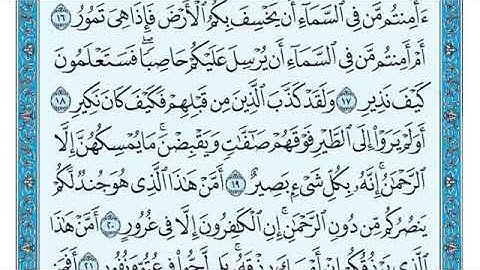 ءَأَمِنتُم مَّن فِى ٱلسَّمَآءِ أَن يَخْسِفَ بِكُمُ ٱلْأَرْضَ فَإِذَا هِىَ تَمُورُ ١٦
أَمْ أَمِنتُم مَّن فِى ٱلسَّمَآءِ أَن يُرْسِلَ عَلَيْكُمْ حَاصِبًا ۖ فَسَتَعْلَمُونَ
كَيْفَ نَذِيرِ ١٧ وَلَقَدْ كَذَّبَ ٱلَّذِينَ مِن قَبْلِهِمْ فَكَيْفَ كَانَ نَكِيرِ ١٨
أَوَلَمْ يَرَوْا۟ إِلَى ٱلطَّيْرِ فَوْقَهُمْ صَٰٓفَّٰتٍ وَيَقْبِضْنَ ۚ مَا يُمْسِكُهُنَّ إِلَّا
ٱلرَّحْمَٰنُ ۚ إِنَّهُۥ بِكُلِّ شَىْءٍۭ بَصِيرٌ ١٩ أَمَّنْ هَٰذَا ٱلَّذِى هُوَ جُندٌ لَّكُمْ
يَنصُرُكُم مِّن دُونِ ٱلرَّحْمَٰنِ ۚ إِنِ ٱلْكَٰفِرُونَ إِلَّا فِى غُرُورٍ ٢٠ أَمَّنْ هَٰذَا
ٱلَّذِى يَرْزُقُكُمْ إِنْ أَمْسَكَ رِزْقَهُۥ ۚ بَل لَّجُّوا۟ فِى عُتُوٍّ وَنُفُورٍ ٢١ أَفَمَن